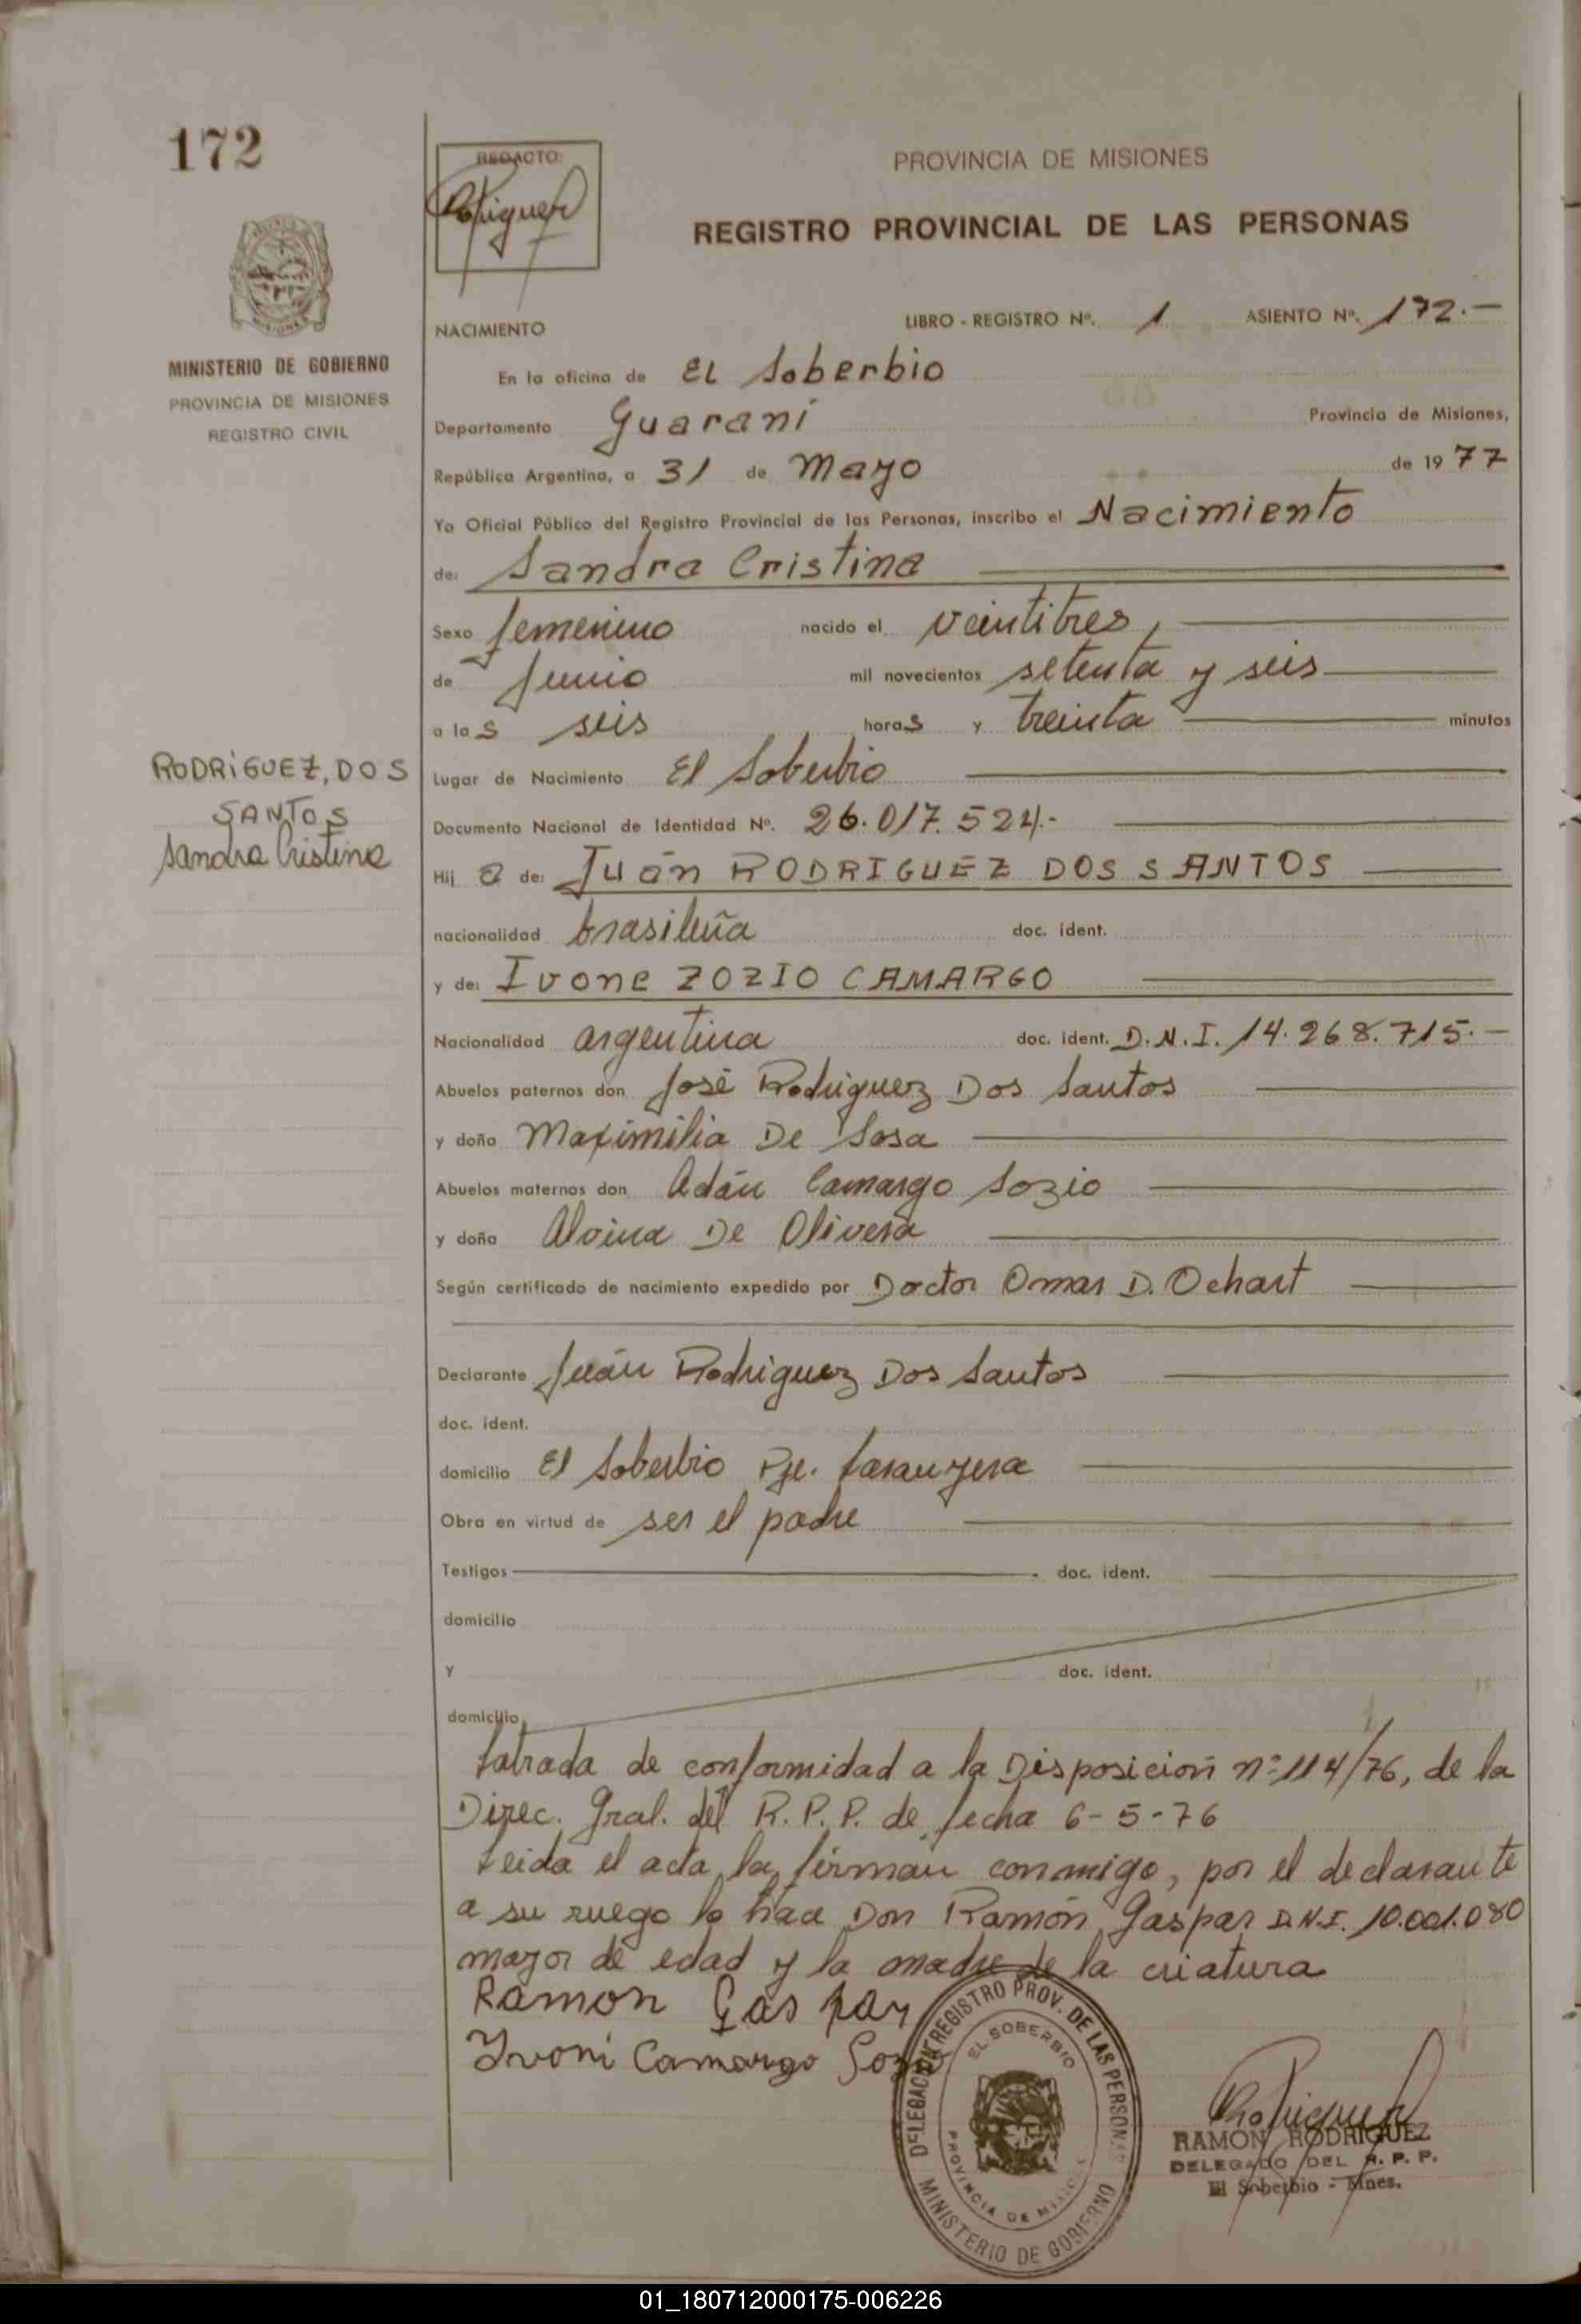 172
REDACTO:
Rodriguez
PROVINCIA DE MISIONES
REGISTRO PROVINCIAL DE LAS PERSONAS
MINISTERIO DE GOBIERNO
PROVINCIA DE MISIONES
REGISTRO CIVIL
NACIMIENTO LIBRO - REGISTRO Nº. 1 ASIENTO Nº. 172.-
En la oficina de EL Soberbio
Departamento Guarani Provincia de Misiones,
República Argentina, a 31 de Mayo de 1977
Yo Oficial Público del Registro Provincial de las Personas, inscribo el Nacimiento
de: Sandra Cristina
Sexo femenino nacido el veintitres,
de Junio mil novecientos setenta y seis
a las seis horas y treinta minutos
RODRiGUEZ, DOS
SANTOS
Sandra Cristina
Lugar de Nacimiento El Soberbio
Documento Nacional de Identidad Nº. 26.017.524.-
Hij a de: Juán RODRIGUEZ DOS SANTOS
nacionalidad brasileña doc. ident.
y de: Ivone ZOZIO CAMARGO
Nacionalidad argentina doc. ident. D.N.I. 14.268.715.-
Abuelos paternos don José Rodriguez Dos Santos
y doña Maximilia De Sosa
Abuelos maternos don Adán Camargo Sozio
y doña Alvina De Olivera
Según certificado de nacimiento expedido por Doctor Omar D. Ochart
Declarante Juán Rodriguez Dos Santos
doc. ident.
domicilio El Soberbio Pje.
Obra en virtud de ser el padre
Testigos doc. ident.
domicilio
y doc. ident.
domicilio
de conformidad a la Disposición nº 114/76, de la
Direc. Gral. del R.P.P. de fecha 6-5-76
Leida el acta, la firman conmigo, por el declarante
a su ruego lo hace Don Ramón Gaspar D.N.I. 10.001.080
mayor de edad y la madre de la criatura
Ramon Gaspar
Ivoni Camargo
DELEGACION REGISTRO PROV. DE LAS PERSONAS
EL SOBERBIO
PROVINCIA DE MISIONES
MINISTERIO DE GOBIERNO
Rodriguez
RAMON RODRIGUEZ
DELEGADO DEL R. P. P.
El Soberbio - Mnes.
01_180712000175-006226